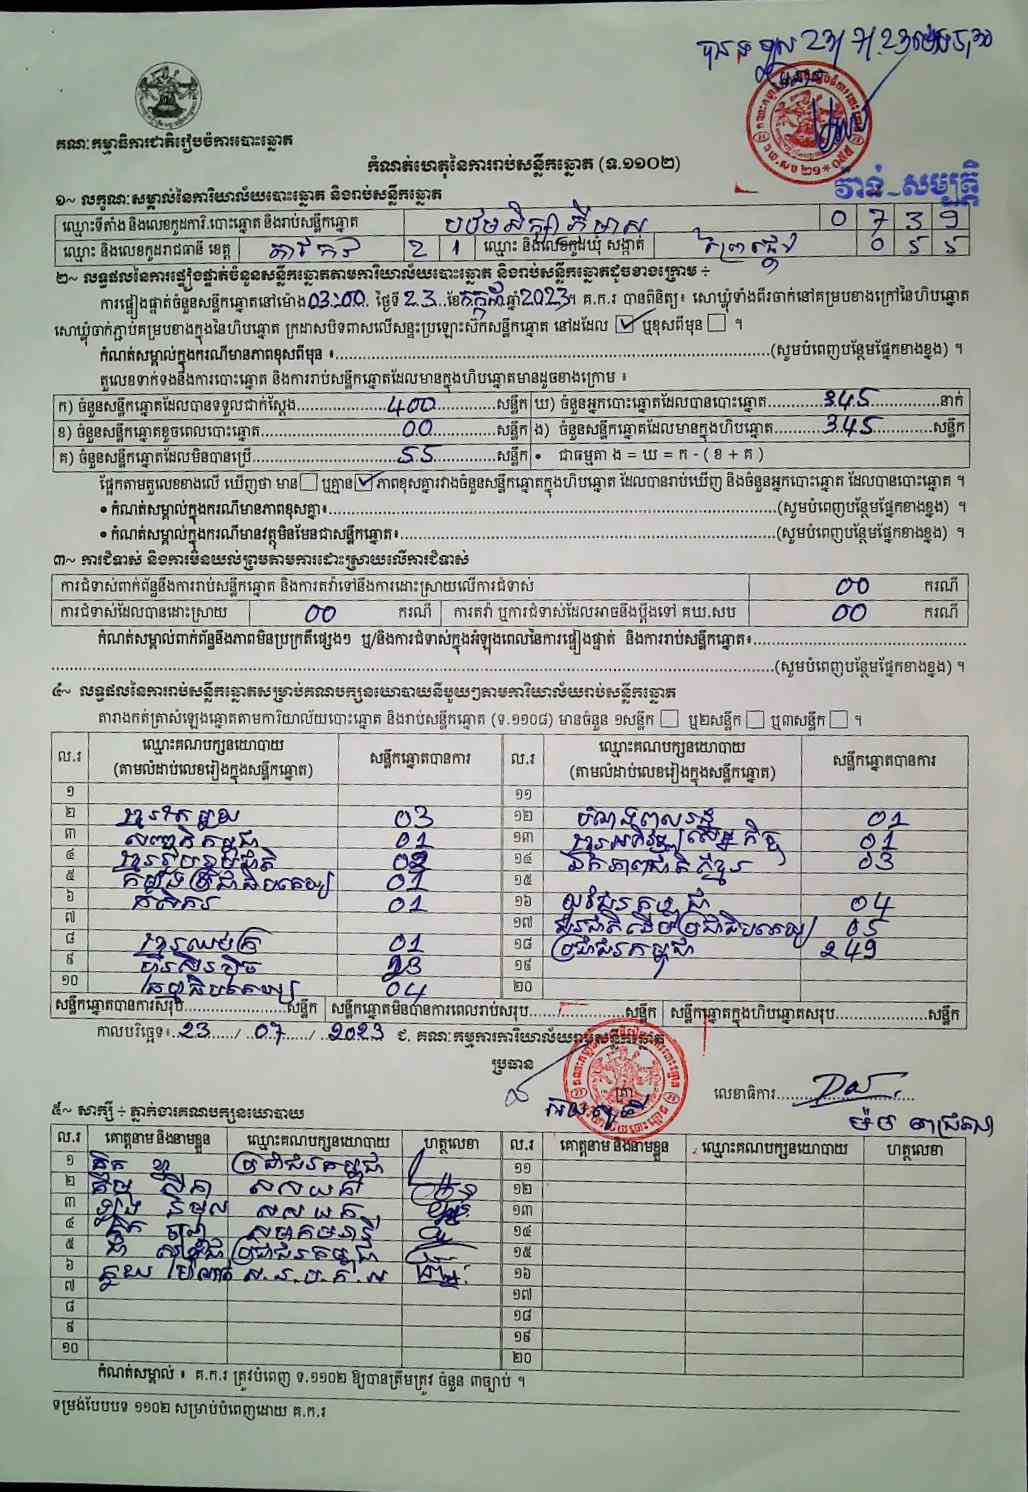 23/7/23
គណៈកម្មាធិការជាតិរៀបចំការបោះឆ្នោត
កំណត់ហេតុនៃការរាប់សន្លឹកឆ្នោត (ទ.១១០២)
វ៉ាន់ សម្បត្តិ
១~ លក្ខណៈសម្គាល់នៃការិយាល័យបោះឆ្នោត និងរាប់សន្លឹកឆ្នោត
ឈ្មោះទីតាំង និងលេខកូដការិ.បោះឆ្នោត និងរាប់សន្លឹកឆ្នោត 0 7 3 9
ឈ្មោះ និងលេខកូដរាជធានី ខេត្ត តាកែវ 2 1 ឈ្មោះ និងលេខកូដឃុំ សង្កាត់ ព្រៃផ្ដៅ 0 5 5
២~ លទ្ធផលនៃការផ្ទៀងផ្ទាត់ចំនួនសន្លឹកឆ្នោតតាមការិយាល័យបោះឆ្នោត និងរាប់សន្លឹកឆ្នោតដូចខាងក្រោម ÷
ការផ្ទៀងផ្ទាត់ចំនួនសន្លឹកឆ្នោតនៅម៉ោង 03:00 ថ្ងៃទី 23 ខែ កក្កដា ឆ្នាំ 2023។ គ.ក.រ បានពិនិត្យ៖ សោឃ្លុំទាំងពីរចាក់នៅគម្របខាងក្រៅនៃហិបឆ្នោត
សោឃ្លុំចាក់ភ្ជាប់គម្របខាងក្នុងនៃហិបឆ្នោត ក្រដាសបិទពាសលើសន្ទះប្រឡោះស៊កសន្លឹកឆ្នោត នៅដដែល ☑ ឬខុសពីមុន ☐ ។
កំណត់សម្គាល់ក្នុងករណីមានភាពខុសពីមុន ៖ (សូមបំពេញបន្ថែមផ្នែកខាងខ្នង) ។
តួលេខទាក់ទងនឹងការបោះឆ្នោត និងការរាប់សន្លឹកឆ្នោតដែលមានក្នុងហិបឆ្នោតមានដូចខាងក្រោម ៖
ក) ចំនួនសន្លឹកឆ្នោតដែលបានទទួលជាក់ស្ដែង 400 សន្លឹក ឃ) ចំនួនអ្នកបោះឆ្នោតដែលបានបោះឆ្នោត 345 នាក់
ខ) ចំនួនសន្លឹកឆ្នោតខូចពេលបោះឆ្នោត 00 សន្លឹក ង) ចំនួនសន្លឹកឆ្នោតដែលមានក្នុងហិបឆ្នោត 345 សន្លឹក
គ) ចំនួនសន្លឹកឆ្នោតដែលមិនបានប្រើ 55 សន្លឹក • ជាធម្មតា ង = ឃ = ក - ( ខ + គ )
ផ្អែកតាមតួលេខខាងលើ ឃើញថា មាន ☐ ឬគ្មាន ☑ ភាពខុសគ្នារវាងចំនួនសន្លឹកឆ្នោតក្នុងហិបឆ្នោត ដែលបានរាប់ឃើញ និងចំនួនអ្នកបោះឆ្នោត ដែលបានបោះឆ្នោត ។
• កំណត់សម្គាល់ក្នុងករណីមានភាពខុសគ្នា៖ (សូមបំពេញបន្ថែមផ្នែកខាងខ្នង) ។
• កំណត់សម្គាល់ក្នុងករណីមានវត្ថុមិនមែនជាសន្លឹកឆ្នោត៖ (សូមបំពេញបន្ថែមផ្នែកខាងខ្នង) ។
៣~ ការជំទាស់ និងការមិនយល់ព្រមតាមការដោះស្រាយលើការជំទាស់
ការជំទាស់ពាក់ព័ន្ធនឹងការរាប់សន្លឹកឆ្នោត និងការតវ៉ាទៅនឹងការដោះស្រាយលើការជំទាស់ 00 ករណី
ការជំទាស់ដែលបានដោះស្រាយ 00 ករណី ការតវ៉ា ឬការជំទាស់ដែលអាចនឹងប្ដឹងទៅ គឃ.សប 00 ករណី
កំណត់សម្គាល់ពាក់ព័ន្ធនឹងភាពមិនប្រក្រតីផ្សេងៗ ឬ/និងការជំទាស់ក្នុងអំឡុងពេលនៃការផ្ទៀងផ្ទាត់ និងការរាប់សន្លឹកឆ្នោត៖
(សូមបំពេញបន្ថែមផ្នែកខាងខ្នង) ។
៤~ លទ្ធផលនៃការរាប់សន្លឹកឆ្នោតសម្រាប់គណបក្សនយោបាយនីមួយៗតាមការិយាល័យរាប់សន្លឹកឆ្នោត
តារាងកត់ត្រាសំឡេងឆ្នោតតាមការិយាល័យបោះឆ្នោត និងរាប់សន្លឹកឆ្នោត (ទ.១១០៨) មានចំនួន ១សន្លឹក ☐ ឬ២សន្លឹក ☐ ឬ៣សន្លឹក ☐ ។
ល.រ ឈ្មោះគណបក្សនយោបាយ (តាមលំដាប់លេខរៀងក្នុងសន្លឹកឆ្នោត) សន្លឹកឆ្នោតបានការ ល.រ ឈ្មោះគណបក្សនយោបាយ (តាមលំដាប់លេខរៀងក្នុងសន្លឹកឆ្នោត) សន្លឹកឆ្នោតបានការ
១ ១១
២ ខ្មែរតែមួយ 03 ១២ បំណងពលរដ្ឋ 01
៣ សញ្ជាតិកម្ពុជា 01 ១៣ ខ្មែរអភិវឌ្ឍន៍សេដ្ឋកិច្ច 01
៤ ខ្មែររួបរួមជាតិ ១៤ ឯកភាពជាតិខ្មែរ 03
៥ កម្លាំងប្រជាធិបតេយ្យ 01 ១៥
៦ កសិករ 01 ១៦ យុវជនកម្ពុជា 04
៧ ១៧ ជួរជាតិដើម្បីប្រជាធិបតេយ្យ 05
៨ ខ្មែរឈប់ក្រ 01 ១៨ ប្រជាជនកម្ពុជា 249
៩ ហ៊្វុនស៊ិនប៉ិច ១៩
១០ ប្រជាធិបតេយ្យ 04 ២០
សន្លឹកឆ្នោតបានការសរុប សន្លឹក សន្លឹកឆ្នោតមិនបានការពេលរាប់សរុប សន្លឹក សន្លឹកឆ្នោតក្នុងហិបឆ្នោតសរុប សន្លឹក
កាលបរិច្ឆេទ៖ 23 / 07 / 2023 ជ. គណៈកម្មការការិយាល័យរាប់សន្លឹកឆ្នោត
ប្រធាន
លេខាធិការ
៥~ សាក្សី ÷ ភ្នាក់ងារគណបក្សនយោបាយ
ល.រ គោត្តនាម និងនាមខ្លួន ឈ្មោះគណបក្សនយោបាយ ហត្ថលេខា ល.រ គោត្តនាម និងនាមខ្លួន ឈ្មោះគណបក្សនយោបាយ ហត្ថលេខា
១ ប្រជាជនកម្ពុជា ១១
២ ស ស យ ក ១២
៣ ស ស យ ក ១៣
៤ ១៤
៥ ប្រជាជនកម្ពុជា ១៥
៦ ១៦
៧ ១៧
៨ ១៨
៩ ១៩
១០ ២០
កំណត់សម្គាល់ ៖ គ.ក.រ ត្រូវបំពេញ ទ.១១០២ ឱ្យបានត្រឹមត្រូវ ចំនួន ៣ច្បាប់ ។
ទម្រង់បែបបទ ១១០២ សម្រាប់បំពេញដោយ គ.ក.រ